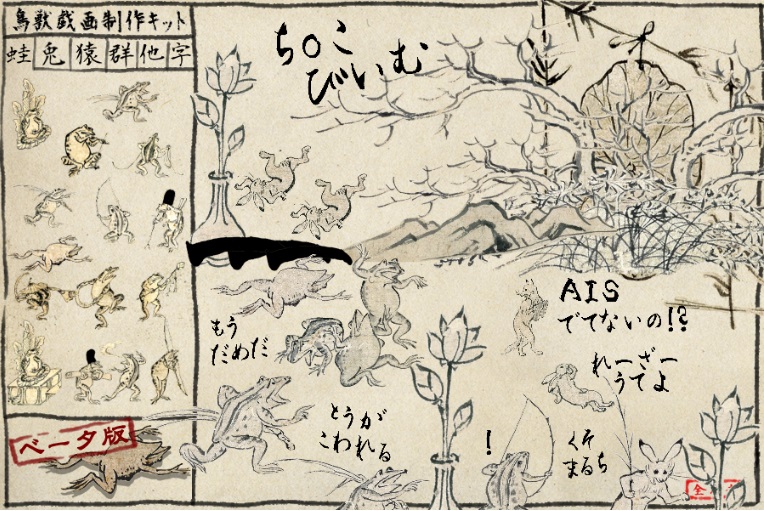 鳥獣戯画制作キット
蛙 兎 猿 群 他 字
ち○こ
びいむ
AIS
でてないの!?
もう
だめだ
れーざー
うてよ
とうが
こわれる
!
くそ
まるち
ベータ版
全